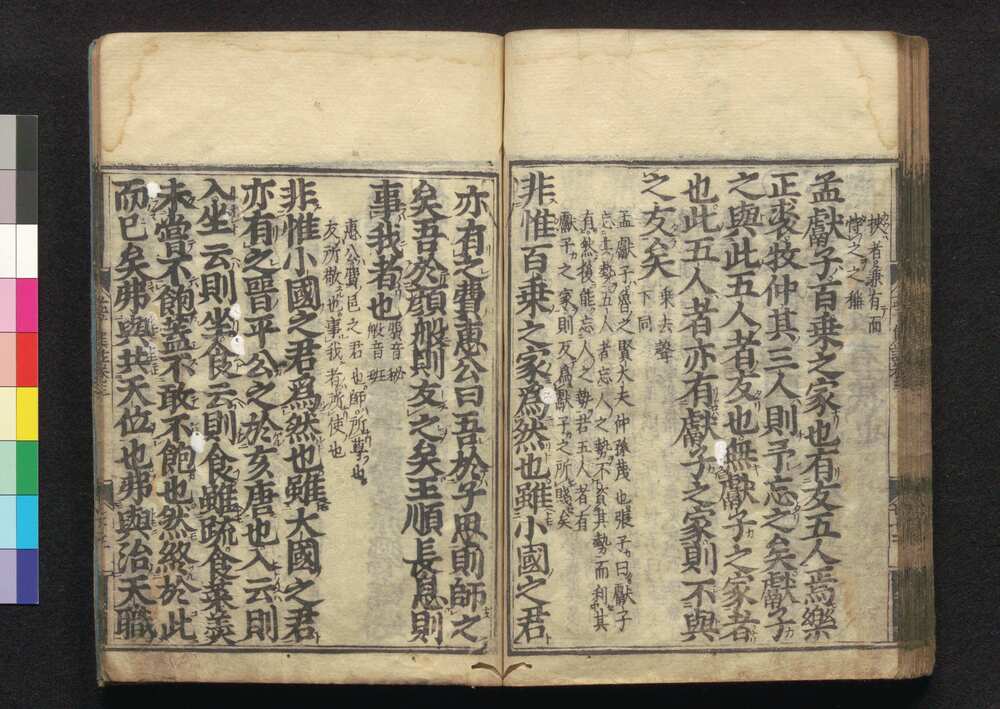 挾者兼有而
恃之之稱
孟獻子百乘之家也有友五人焉樂
正裘牧仲其三人則予忘之矣獻子
之與此五人者友也無獻子之家者
也此五人者亦有獻子之家則不與
之友矣 乘去聲
下同
孟獻子魯之賢大夫仲孫蔑也張子曰獻子
忘其勢五人者忘人之勢不資其勢而利其
有然後能忘人之勢若五人者有
獻子之家則反爲獻子之所賤矣
非惟百乘之家爲然也雖小國之君
亦有之費惠公曰吾於子思則師之
矣吾於顏般則友之矣王順長息則
事我者也 費音秘
般音班
惠公費邑之君也師所尊也
友所敬也事我者所使也
非惟小國之君爲然也雖大國之君
亦有之晉平公之於亥唐也入云則
入坐云則坐食云則食雖疏食菜羹
未嘗不飽蓋不敢不飽也然終於此
而已矣弗與共天位也弗與治天職